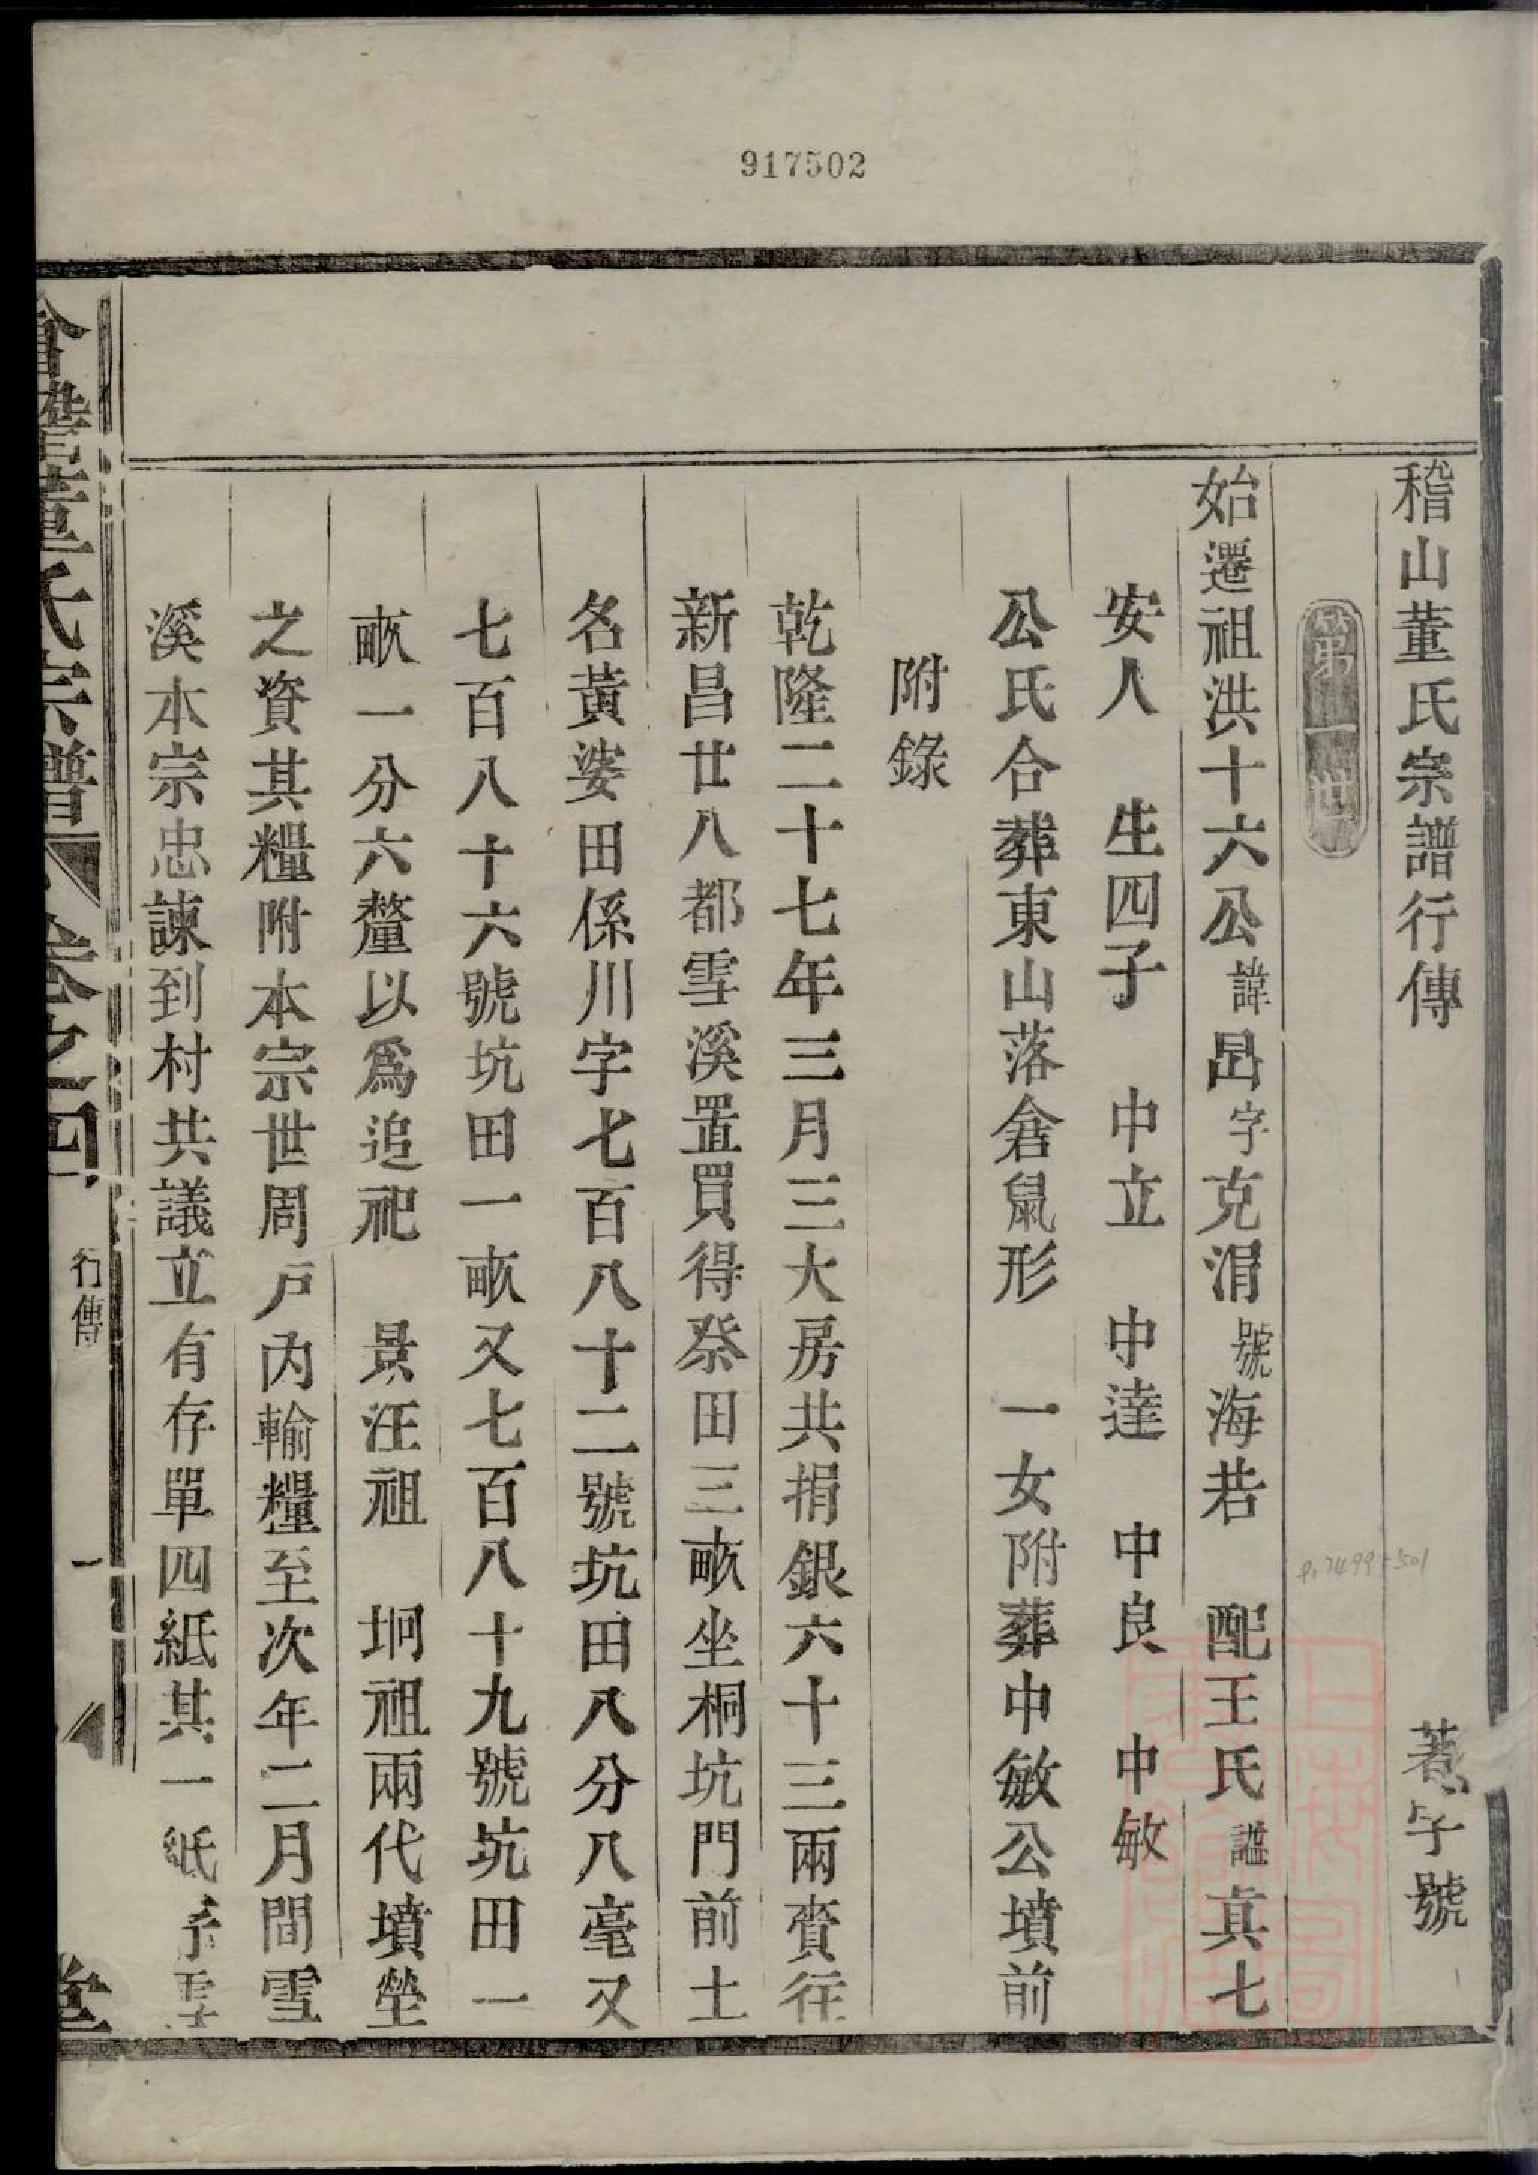 917502
稽山董氏宗譜行傳 著字號
第一世
始遷祖洪十六公諱昌字克涓號海若 配王氏謚真七
安人 生四子 中立 中達 中良 中敏
公氏合葬東山落倉鼠形 一女附葬中敏公墳前
附錄
乾隆二十七年三月三大房共捐銀六十三兩賫往
新昌廿八都雪溪置買得祭田三畝坐桐坑門前土
名黃婆田係川字七百八十二號坑田八分八毫又
七百八十六號坑田一畝又七百八十九號坑田一
畝一分六釐以爲追祀 景汪祖 坰祖兩代墳塋
之資其糧附本宗世周戶內輸糧至次年二月間雪
溪本宗忠諫到村共議立有存單四紙其一紙雪
會稽董氏宗譜 卷之四 行傳 一 堂